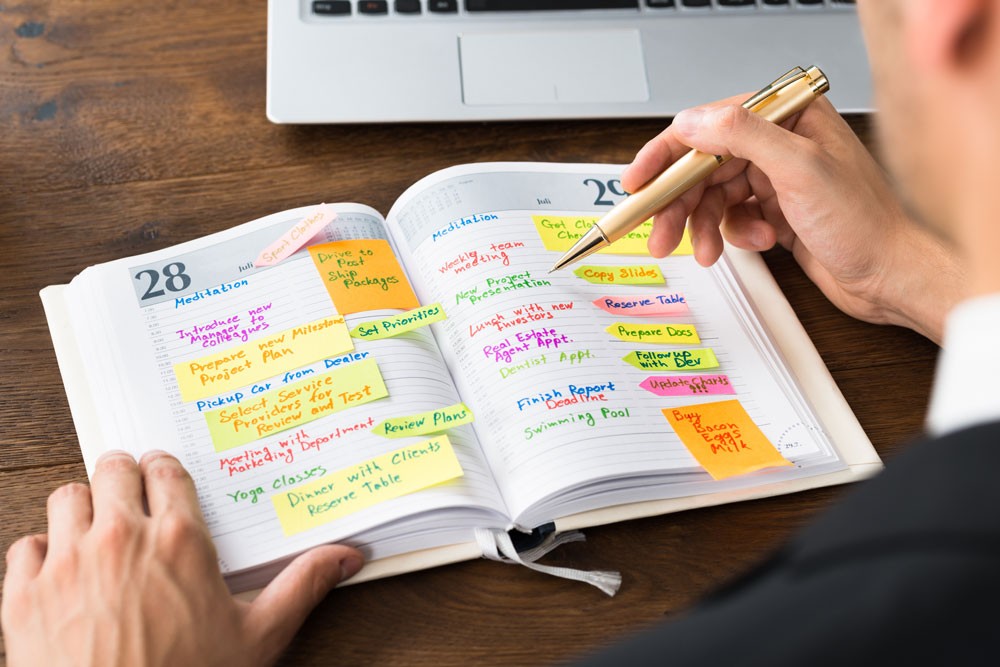 28
Sport Clothes
Meditation
Drive to
Post
Ship
Packages
Introduce new
Manager to
colleagues
Set Priorities
Prepare new Milestone
Project Plan
Pickup Car from Dealer
Select Service
Providers for
Review and Test
Review Plans
Meeting with
Marketing Department
Yoga Classes
Dinner with Clients
Reserve Table
Juli
29
Meditation
Get
Weekly team
meeting
Copy Slides
New Project
Presentation
Reserve Table
Lunch with new
Investors
Prepare Docs
Real Estate
Agent Appt.
Follow up
with Dev
Dentist Appt.
Update Charts
!!!
Finish Report
Deadline
Swimming Pool
Buy
Bacon
Eggs
Milk